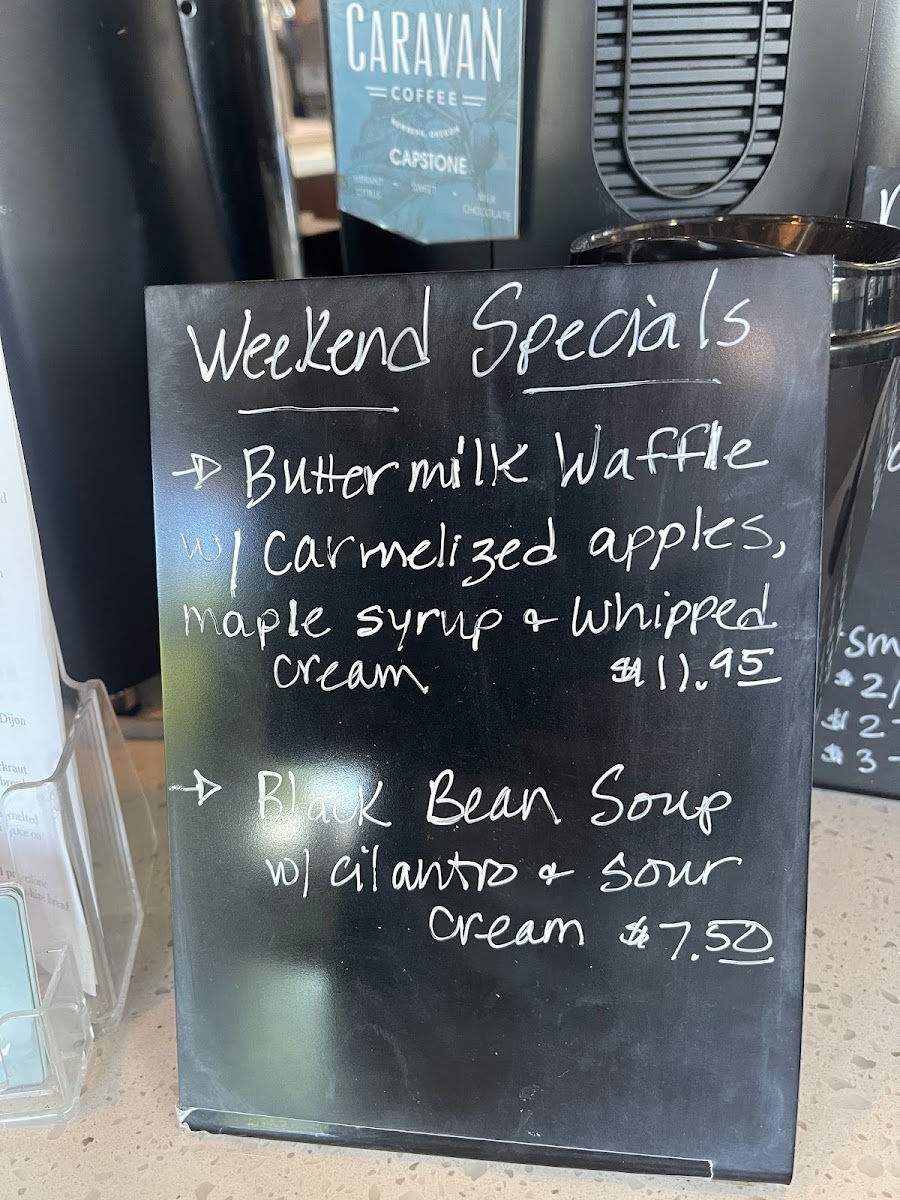 CARAVAN
COFFEE
NEWBERG, OREGON
CAPSTONE
VIBRANT CITRUS
SWEET
MILK CHOCOLATE
Weekend Specials
Buttermilk Waffle
w/ Carmelized apples,
maple syrup & Whipped
cream $11.95
Black Bean Soup
w/ cilantro & sour
cream $7.50
Dijon
melted
sm
$2
$2
$3